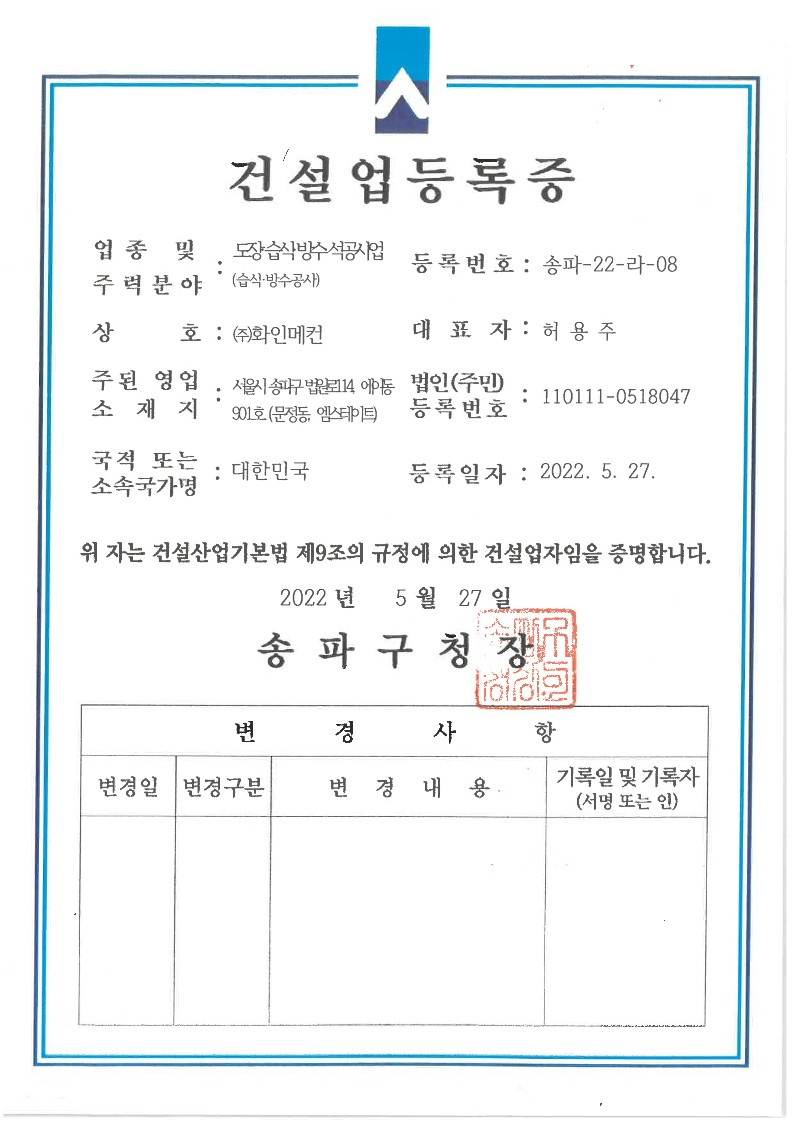 건설업등록증
업종 및 주력분야 : 도장·습식·방수·석공사업
(습식·방수공사)
등록번호 : 송파-22-라-08
상 호 : ㈜화인메컨
대 표 자 : 허 용 주
주된 영업 소 재 지 : 서울시 송파구 법원로 114, 에이동
901호 (문정동, 엠스테이트)
법인(주민) 등록번호 : 110111-0518047
국적 또는 소속국가명 : 대한민국
등록일자 : 2022. 5. 27.
위 자는 건설산업기본법 제9조의 규정에 의한 건설업자임을 증명합니다.
2022 년 5 월 27 일
송 파 구 청 장
변 경 사 항
변경일 변경구분 변 경 내 용 기록일 및 기록자
(서명 또는 인)